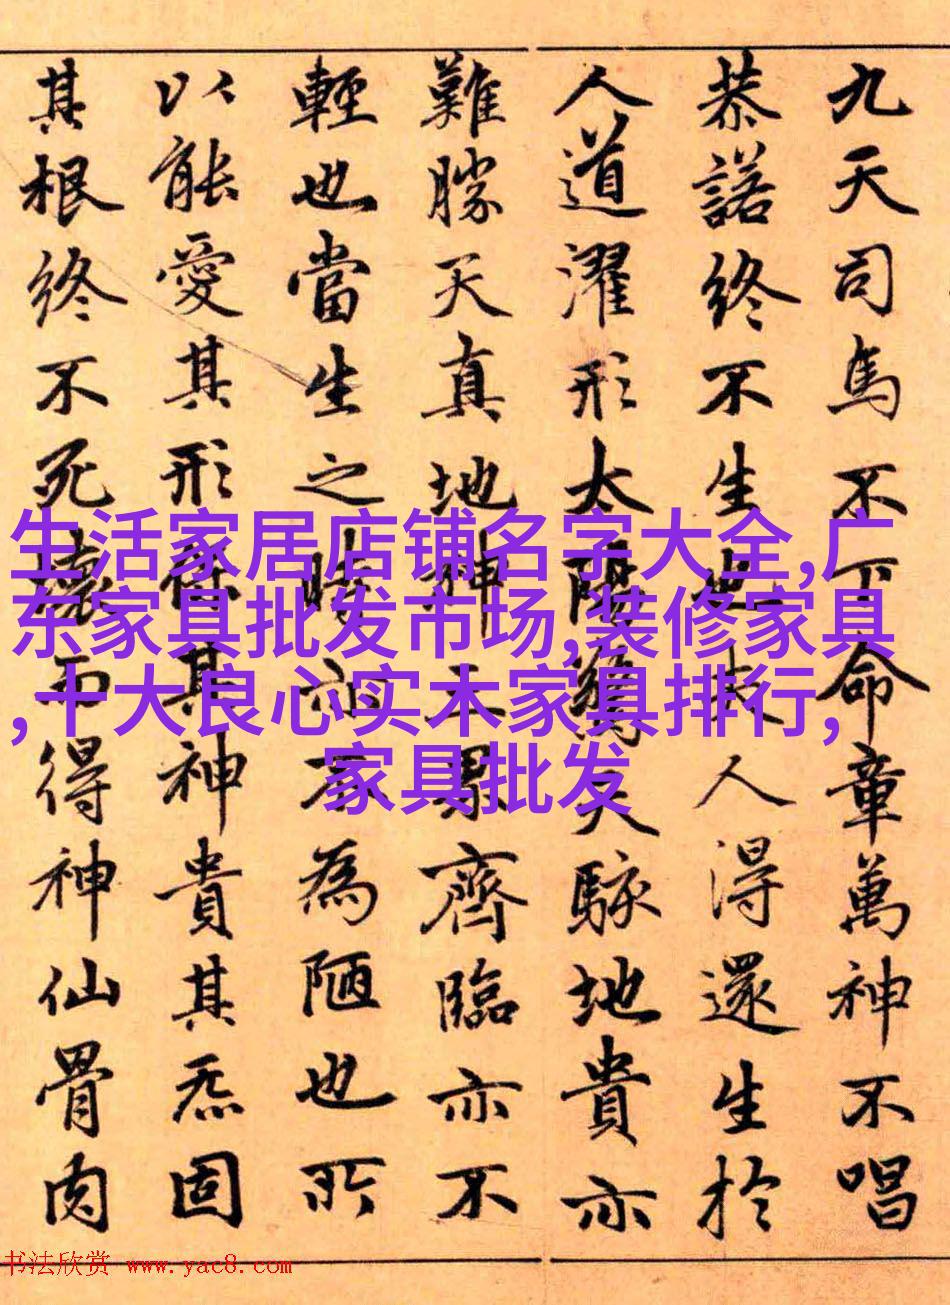 九天司馬不下命章萬神不唱
恭諾終不生也夫人得還生於
人道濯形太陽驚天駭地貴亦
難勝天真地神三界齊臨亦不
輕也當生之時亦不為陋也所
以能愛其形保其神貴其炁固
其根終不死壞而得神仙骨肉
生活家居店铺名字大全,广
东家具批发市场,装修家具
,十大良心实木家具排行,
家具批发
书法欣赏 www.yac8.com